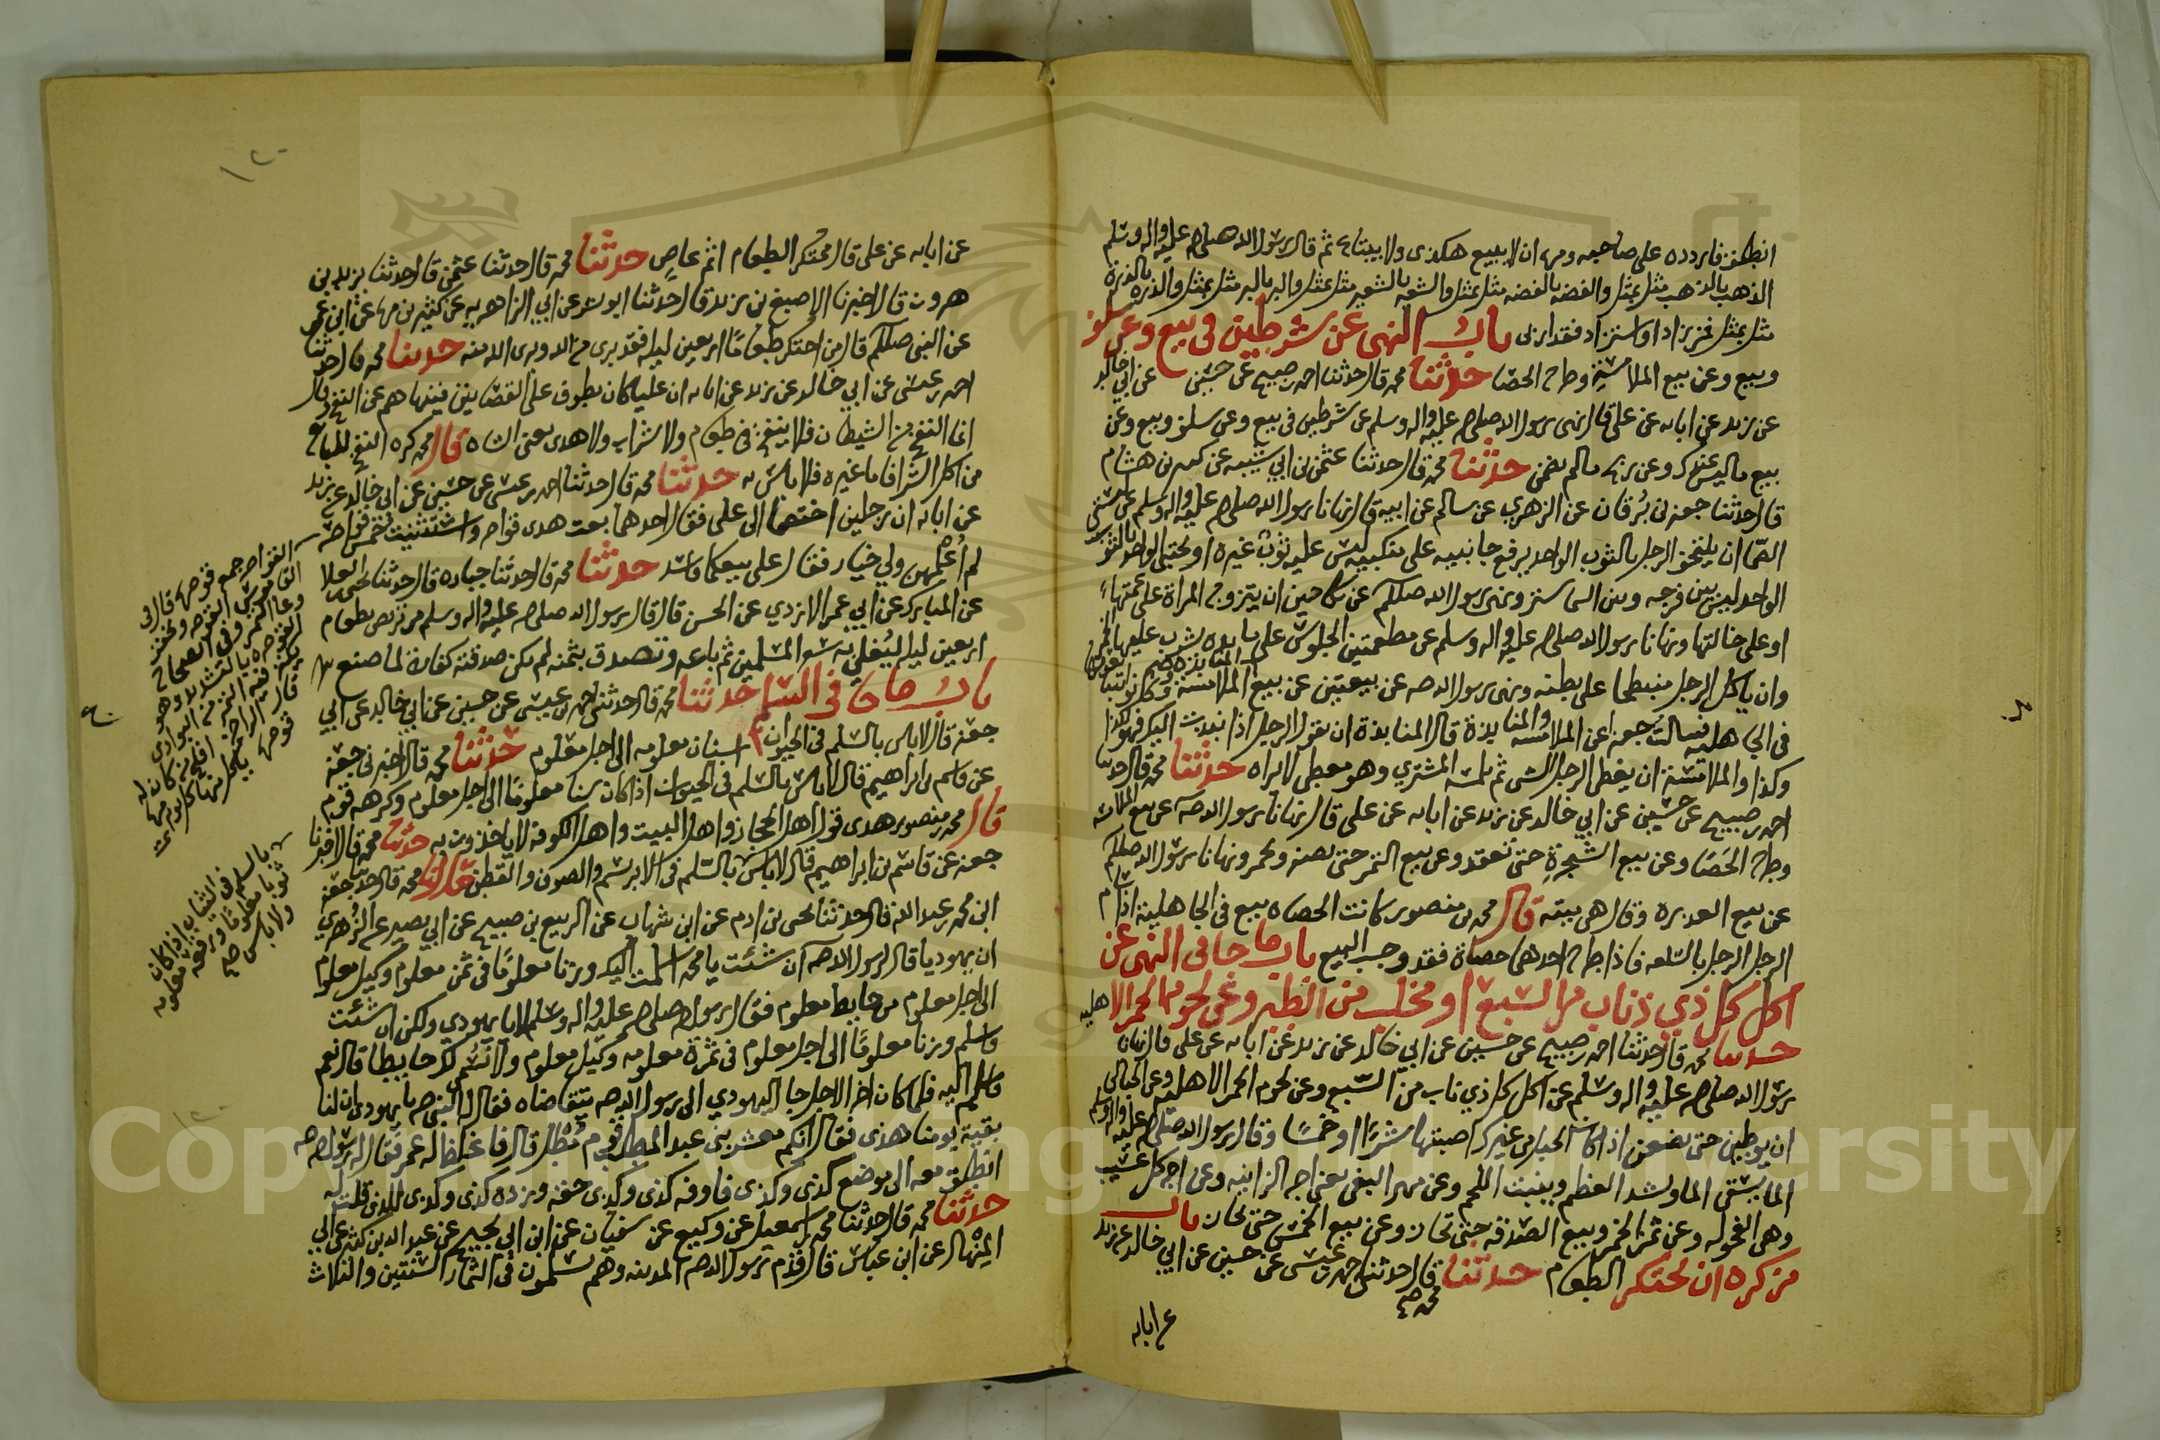 انطلق فاردده على صاحبه ومره ان لا يبيع هكذى ولا يبتاع ثم قال رسول الله صلى الله عليه واله وسلم
الذهب بالذهب مثل بمثل والفضه بالفضه مثل بمثل والشعير بالشعير مثل بمثل والبر بالبر مثل بمثل والذره بالذرة
مثل بمثل فمن زاد او استزاد فقد اربى باب النهي عن شرطين في بيع وعن سلف
وبيع وعن بيع الملامسة وطرح الحصا حدثنا محمد قال حدثنا احمد بن صبيح عن حسين عن ابي خالد
عن زيد عن ابائه عن علي قال نهى رسول الله صلى الله عليه واله وسلم عن شرطين في بيع وعن سلف وبيع وعن
بيع ما ليس عندك وعن ربح ما لم يضمن حدثنا محمد قال حدثنا عثمن بن ابي شيبه عن كثير بن هشام
قال حدثنا جعفر بن برقان عن الزهري عن سالم عن ابيه قال نهانا رسول الله صلى الله عليه واله وسلم عن لبستين
الصما ان يلتحف الرجل بالثوب الواحد يرفع جانبيه على منكبيه ليس عليه ثوب غيره او يحتبي الواحد بالثوب
الواحد ليس بين فرجه وبين السما ستر ونهى رسول الله صلعم عن نكاحين ان يتزوج المراة على عمتها
او على خالتها ونهانا رسول الله صلى الله عليه واله وسلم عن مطعمتين الجلوس على مايده يشرب عليها الخمر
وان ياكل الرجل منبطحا على بطنه ونهى رسول الله صه عن بيعتين عن بيع الملامسة والمنابذة وكانوا يتبايعون
في الجاهليه فسالت جعفر عن الملامسه والمنابذة قال المنابذة ان يقول الرجل اذا نبذت اليك فهو كذا
وكذا والملامسة ان يغطى الرجل الشى ثم يلمسه المشتري وهو مغطى لا يراه حدثنا محمد قال حدثنا
احمد بن صبيح عن حسين عن ابي خالد عن زيد عن ابائه عن علي قال نهانا رسول الله صه عن بيع الملامسه
وطرح الحصا وعن بيع الشجرة حتى تعقد وعن بيع التمر حتى يصفر ويحمر ونهانا رسول الله صلعم
عن بيع العذره وقال هي ميته قال محمد بن منصور كانت الحصاه بيع في الجاهلية اذا سام
الرجل الرجل بالسلعه فاذا طرح احدهما حصاة فقد وجب البيع باب ما جا في النهي عن
اكل كل ذي ناب من السبع او مخلب من الطير وعن لحوم الحمر الاهليه
حدثنا محمد قال حدثنا احمد بن صبيح عن حسين عن ابي خالد عن زيد عن ابائه عن علي قال نهانا
رسول الله صلى الله عليه واله وسلم عن اكل كل ذي ناب من السبع وعن لحوم الحمر الاهليه وعن الحبالى
ان يوطين حتى يضعن اذا كان الحبل من غيرك اصبتها شرا او خمسا وقال رسول الله صلى الله عليه واله وسلم
الما يسقى الما ويشد العظم وينبت اللحم وعن مهر البغي يعني اجر الزانيه وعن اجر كل عسيب
وهي الفحوله وعن ثمن الخمر وبيع الصدقه حتى تحاز وعن بيع الخمس حتى يحاز باب
من كره ان يحتكر الطعام حدثنا محمد صح قال حدثنا احمد بن عيسى عن حسين عن ابي خالد عن زيد
عن ابائه
عن ابائه عن علي قال محتكر الطعام اثم عاص حدثنا محمد قال حدثنا عثمن قال حدثنا يزيد بن
هرون قال اخبرنا الاصبغ بن زيد قال حدثنا ابو بشر عن ابي الزاهريه عن كثير بن مره عن ابن عمر
عن النبي صلعم قال من احتكر طعاما اربعين ليله فقد برى من الله وبرى الله منه حدثنا محمد قال حدثنا
احمد بن عيسى عن ابي خالد عن زيد عن ابائه ان عليا كان يطوف على القصابين فينهاهم عن النفخ وقال
انما النفخ من الشيطان فلا ينفخن في طعام ولا شراب ولا هدى يعني الشاه قال محمد كره النفخ للبياع
من اكل الشر فاما غيره فلا باس به حدثنا محمد قال حدثنا احمد بن عيسى عن حسين عن ابي خالد عن زيد
عن ابائه ان رجلين اختصما الى علي فقال احدهما بعت هذى قواصر واستثنيت خمس قواصر
لم اعلمهن ولي خيار فقال علي بيعكما فاسد حدثنا محمد قال حدثنا جباره قال حدثنا يحيى بن العلا
عن المبارك عن ابي عمر الازدي عن الحسن قال قال رسول الله صلى الله عليه واله وسلم من تربص بطعام
اربعين ليله ليغلي به سعر المسلمين ثم باعه وتصدق بثمنه لم يكن صدقته كفارة لما صنع
باب ما جا في السلم حدثنا محمد قال حدثني احمد بن عيسى عن حسين عن ابي خالد عن ابي
جعفر قال لا باس بالسلم في الحيوان اسنان معلومه الى اجل معلوم حدثنا محمد قال اخبرني جعفر
عن قاسم بن ابراهيم قال لا باس بالسلم في الحيوان اذا كان سنا معلوما الى اجل معلوم وكرهه قوم
قال محمد بن منصور هذى قول اهل الحجاز واهل البيت واهل الكوفة لا ياخذون به حدثنا محمد قال اخبرنا
جعفر عن قاسم بن ابراهيم قال لا باس بالسلم في الابرسم والصوف والقطن حدثنا محمد قال حدثنا جعفر
ابن محمد بن عبد الله قال حدثنا يحيى بن ادم عن ابن شهاب عن الربيع بن صبيح عن ابي بصير عن الزهري
ان يهوديا قال لرسول الله صه ان شئت يا محمد اسلمت اليك وزنا معلوما في ثمن معلوم وكيل معلوم
الى اجل معلوم من حايط معلوم فقال رسول الله صلى الله عليه واله وسلم لا يا يهودي ولكن ان شئت
فاسلم وزنا معلوما الى اجل معلوم في ثمرة معلومه وكيل معلوم ولا اسمي لك حايطا قال نعم
فاسلم اليه فلما كان اخر الاجل جا اليهودي الى رسول الله صه يتقاضاه فقال له النبي صه يا يهودي ان لنا
بقية يومنا هذى فقال انكم معشر بني عبد المطلب قوم مطل قال فاغلظ له عمر فقال له رسول الله صه
انطلق معه الى موضع كذى وكذى فاوفه كذى وكذى حقه وزده كذى وكذى للذي قلت له
حدثنا محمد قال حدثنا محمد بن اسمعيل عن وكيع عن سفيان عن ابن ابي نجيح عن عبد الله بن كثير عن ابي
المنهال عن ابن عباس قال قدم رسول الله صه المدينه وهم يسلمون في الثمار السنتين والثلاث
القواصر جمع قوصره قال في
بالسلم في الثياب اذا كان
ثوبا معلوما ورقعه معلومه
ولا باس صح
Copyright © King Saud University